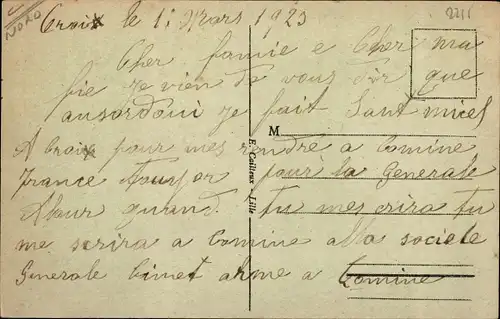 NORD
2211
Croix le 1: Mars 1923
Cher famie e Cher ma
fie je vien de vous dir que
ausordoui je fait Sant micel
A Croix pour mes rendre a Comine
France tousor pour la Generale
Alour quand tu mes crira tu
me scrira a Comine alla societe
Generale Cimet arme a Comine
M
E. Cailteux - Lille